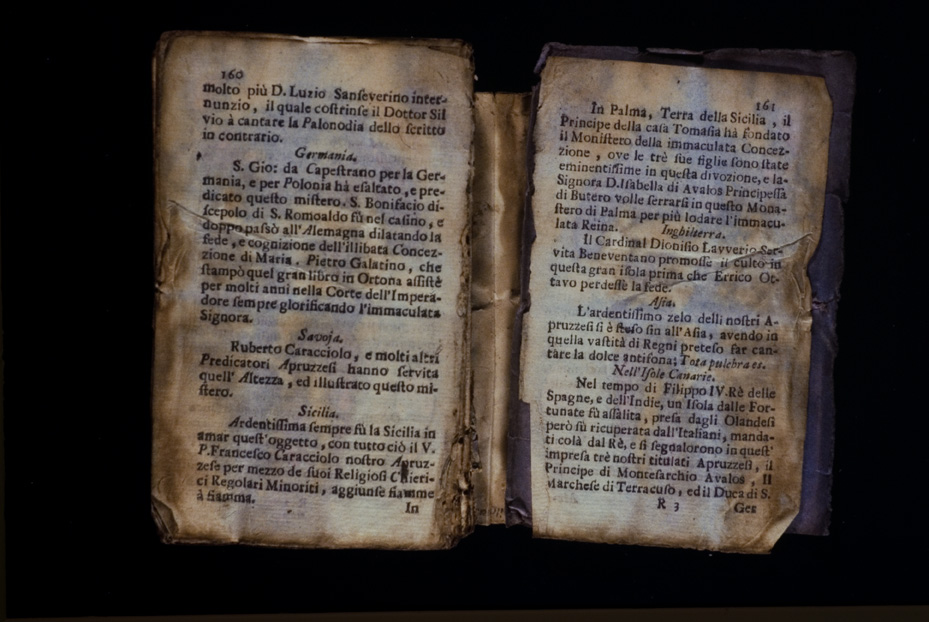 160
molto più D. Luzio Sanseverino inter-
nunzio, il quale costrinse il Dottor Sil
vio à cantare la Palonodia dello scritto
in contrario.
Germania.
S. Gio: da Capestrano per la Ger-
mania, e per Polonia hà esaltato, e pre-
dicato questo mistero. S. Bonifacio di-
scepolo di S. Romoaldo fù nel casino, e
doppo passò all'Alemagna dilatando la
fede, e cognizione dell'illibata Concez-
zione di Maria. Pietro Galatino, che
stampò quel gran libro in Ortona assistè
per molti anni nella Corte dell'Impera-
dore sempre glorificando l'immaculata
Signora.
Savoja.
Ruberto Caracciolo, e molti altri
Predicatori Apruzzesi hanno servita
quell'Altezza, ed illustrato questo mi-
stero.
Sicilia.
Ardentissima sempre fù la Sicilia in
amar quest'oggetto, con tutto ciò il V.
P. Francesco Caracciolo nostro Apruz-
zese per mezzo de suoi Religiosi Chieri-
ci Regolari Minoriti, aggiunse fiamme
à fiamma.
In
161
In Palma, Terra della Sicilia, il
Principe della casa Tomasia hà fondato
il Monistero della immaculata Concez-
zione, ove le trè sue figlie sono state
eminentissime in questa divozione, e la
Signora D. Isabella di Avalos Principessa
di Butero volle serrarsi in questo Mona-
stero di Palma per più lodare l'immacu-
lata Reina.
Inghilterra.
Il Cardinal Dionisio Lavverio Ser-
vita Beneventano promosse il culto in
questa gran isola prima che Errico Ot-
tavo perdesse la fede.
Asia.
L'ardentissimo zelo delli nostri A-
pruzzesi si è steso sin all'Asia, avendo in
quella vastità di Regni preteso far can-
tare la dolce antifona; Tota pulchra es.
Nell'Isole Canarie.
Nel tempo di Filippo IV. Rè delle
Spagne, e dell'Indie, un'Isola dalle For-
tunate fù assalita, presa dagli Olandesi
però fù ricuperata dall'Italiani, manda-
ti colà dal Rè, e si segnalorono in quest'
impresa trè nostri titulati Apruzzesi, il
Principe di Montesarchio Avalos, Il
Marchese di Terracuso, ed il Duca di S.
R 3
Ger